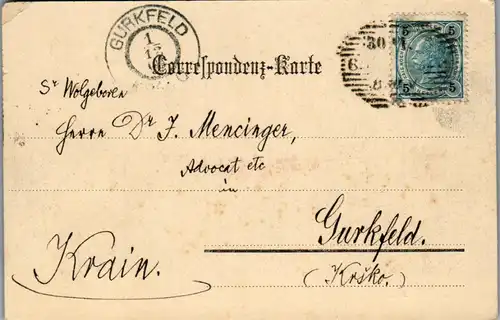 GURKFELD
1
12
Correspondenz-Karte
5 5
30
6
8
5 5
Sr Wolgeboren
Herrn Dr J. Mencinger,
Advocat etc
in
Gurkfeld.
Krain.
(Krško.)